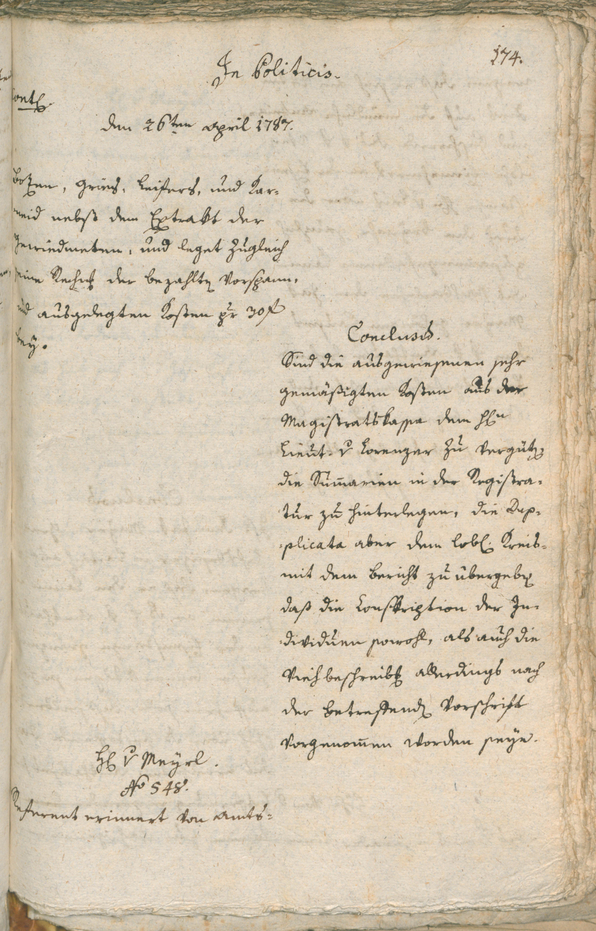 In Politicis.
174.
den 26ten april 1787.
Bozen, Gries, Leifers, und Kar-
neid nebst dem Extrakt der
Gewiedmeten, und leget zugleich
seine Rechng der bezahlten Vorspann,
und ausgelegten Kosten pr 30 f
bey.
Conclusum.
Sind die ausgewiesenen sehr
gemäßigten Kosten aus der
Magistratskassa dem Hln
Lieut. v Lorenzer zu vergüten,
die Summarien in der Registra-
tur zu hinterlegen, die Dup-
plicata aber dem löbl. Kreis-
mit dem Bericht zu übergeben
daß die Conskription der In-
dividuen sowohl, als auch die
Viehbeschreibg allerdings nach
der betreffenden Vorschrift
vorgenommen worden seye.
Hl v Meyrl.
No 548.
Referent erinnert von Amts-